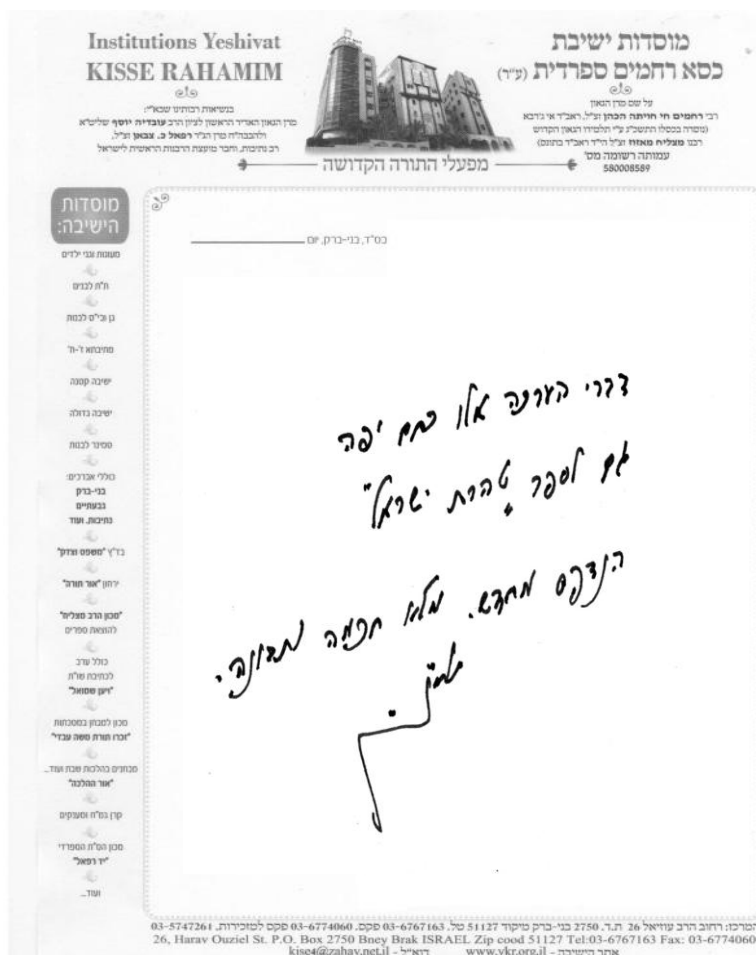 Institutions Yeshivat
KISSE RAHAMIM
מוסדות ישיבת
כסא רחמים ספרדית (ע"ר)
בנשיאות רבותינו שבא"י:
מרן הגאון האדיר הראשון לציון הרב עובדיה יוסף שליט"א
ולהבבח"ח מרן הג"ר רפאל כ. צבאן זצ"ל,
רב נתיבות, וחבר מועצת הרבנות הראשית לישראל
על שם מרן הגאון
רבי רחמים חי חויתה הכהן זצ"ל, ראב"ד אי ג'רבא
(נוסדה בכסלו התשכ"ג ע"י תלמידו הגאון הקדוש
רבנו מצליח מאזוז זצ"ל הי"ד ראב"ד בתונס)
עמותה רשומה מס'
580008589
מפעלי התורה הקדושה
מוסדות
הישיבה:
מעונות וגני ילדים
ת"ת לבנים
גן ובי"ס לבנות
מתיבתא ז'-ח'
ישיבה קטנה
ישיבה גדולה
סמינר לבנות
כוללי אברכים:
בני-ברק
גבעתיים
נתיבות, ועוד
בד"ץ "משפט וצדק"
ירחון "אור תורה"
"מכון הרב מצליח"
להוצאת ספרים
כולל ערב
לכתיבת שו"ת
"ויען שמואל"
מכון למבחן במסכתות
"זכרו תורת משה עבדי"
מבחנים בהלכות שבת ועוד...
"אור ההלכה"
קרן גמ"ח ומענקים
מכון הס"ת הספרדי
"יד רפאל"
ועוד...
בס"ד, בני-ברק, יום
דברי הערכה אלו כתם יפה
גם לספר "טהרת ישראל"
הנדפס מחדש. מלא חכמה ותבונה.
המרכז: רחוב הרב עוזיאל 26 ת.ד. 2750 בני-ברק מיקוד 51127 טל. 03-6767163 פקס. 03-6774060 פקס למזכירות. 03-5747261
26, Harav Ouziel St. P.O. Box 2750 Bney Brak ISRAEL Zip cood 51127 Tel:03-6767163 Fax: 03-6774060
אתר הישיבה - www.ykr.org.il דוא"ל - kise4@zahav.net.il